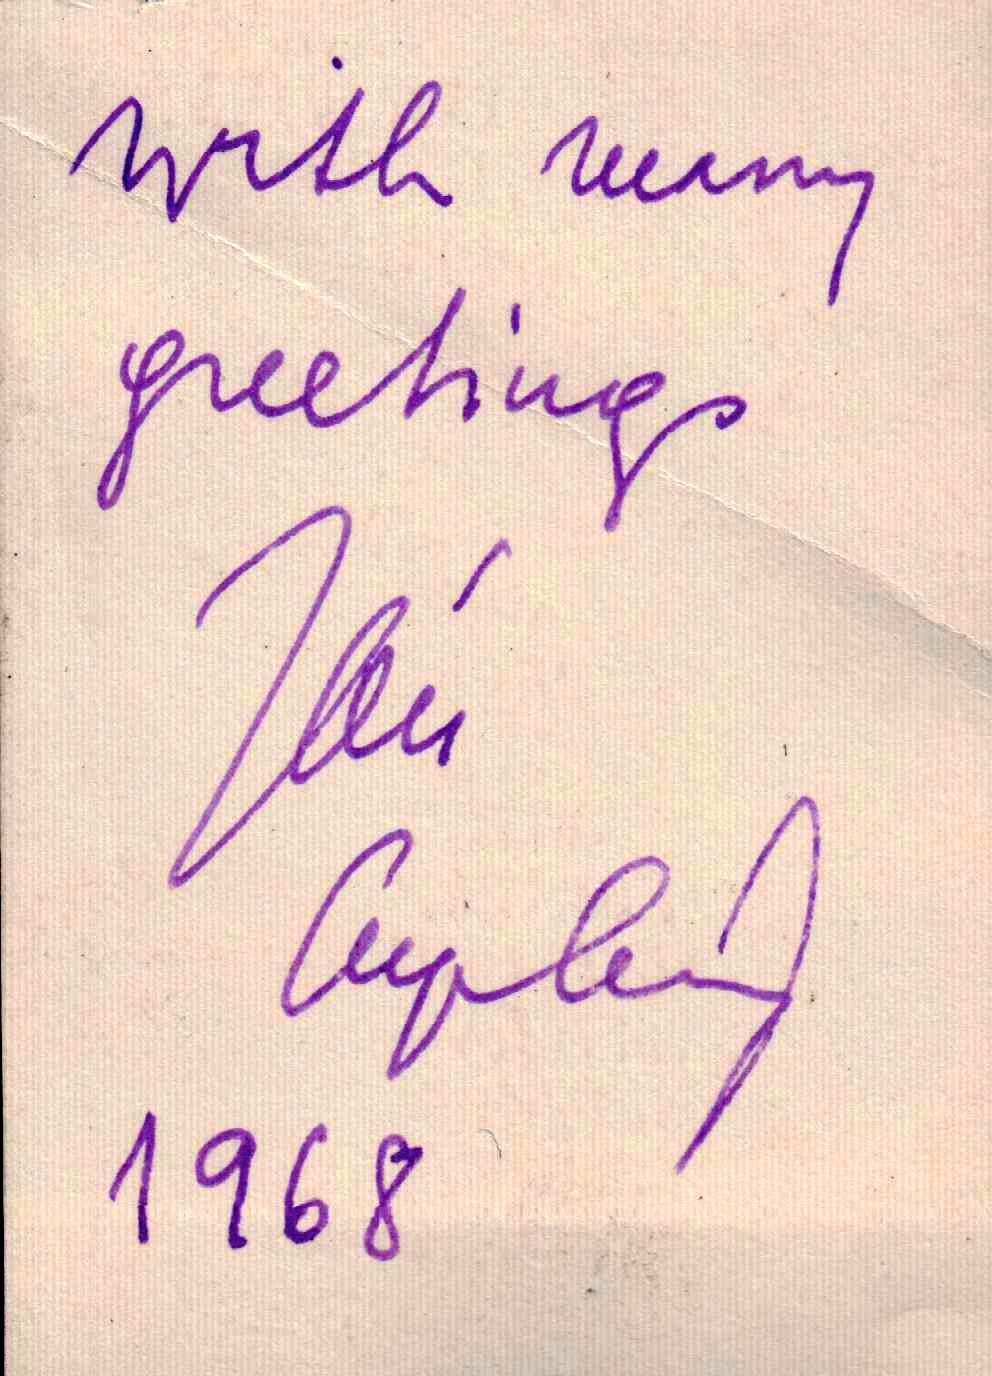 with many
greetings
Ján
1968